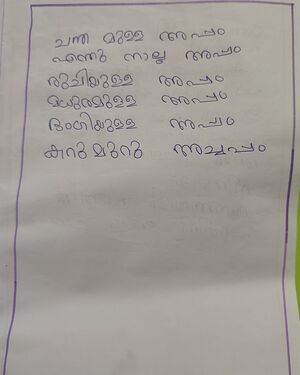 ചന്ത മുള്ള അപ്പം
എന്തു നാല്ല അപ്പം
രുചിയുള്ള അപ്പം
മധുരമുള്ള അപ്പം
ഭംഗിയുള്ള അപ്പം
കറു മുറു അച്ചപ്പം